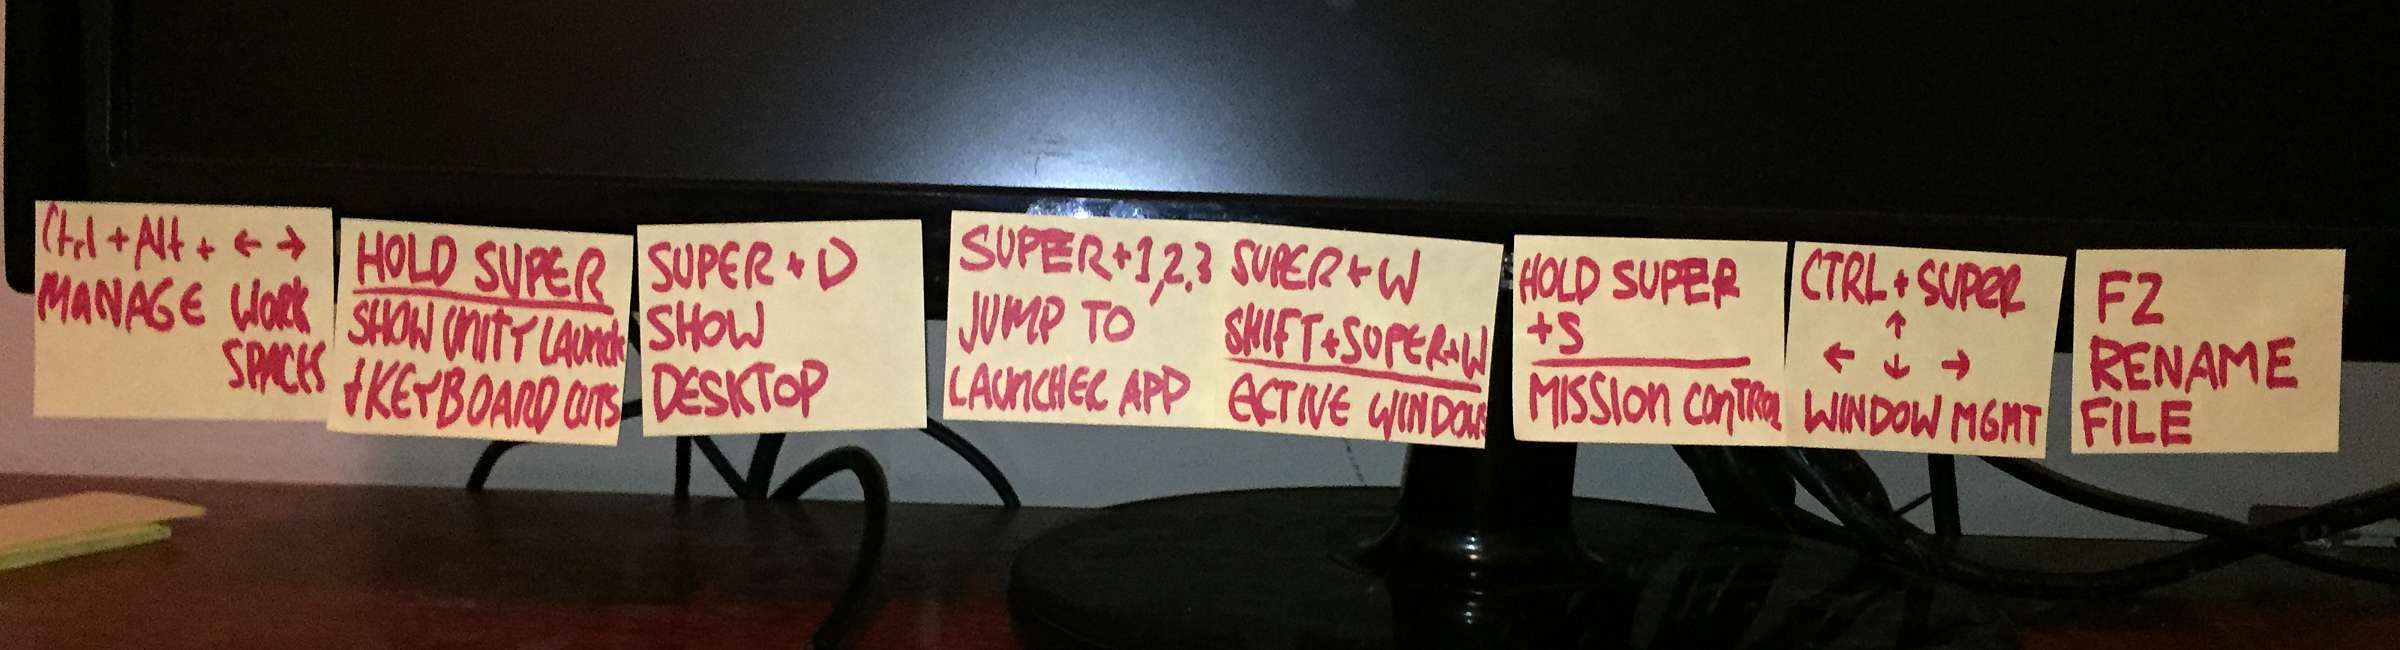 Ctrl + Alt + ← →
MANAGE WORK
SPACES
HOLD SUPER
SHOW UNITY LAUNCH
+ KEYBOARD CUTS
SUPER + D
SHOW
DESKTOP
SUPER+1,2,3
JUMP TO
LAUNCHER APP
SUPER + W
SHIFT+SUPER+W
ACTIVE WINDOWS
HOLD SUPER
+S
MISSION CONTROL
CTRL + SUPER
↑
← ↓ →
WINDOW MGMT
F2
RENAME
FILE